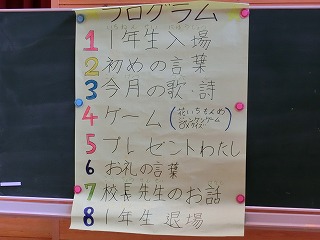 プログラム
1 1年生入場
2 初めの言葉
3 今月の歌・詩
4 ゲーム (花いちもんめ
5 プレゼントわたし
6 お礼の言葉
7 校長先生のお話
8 1年生退場